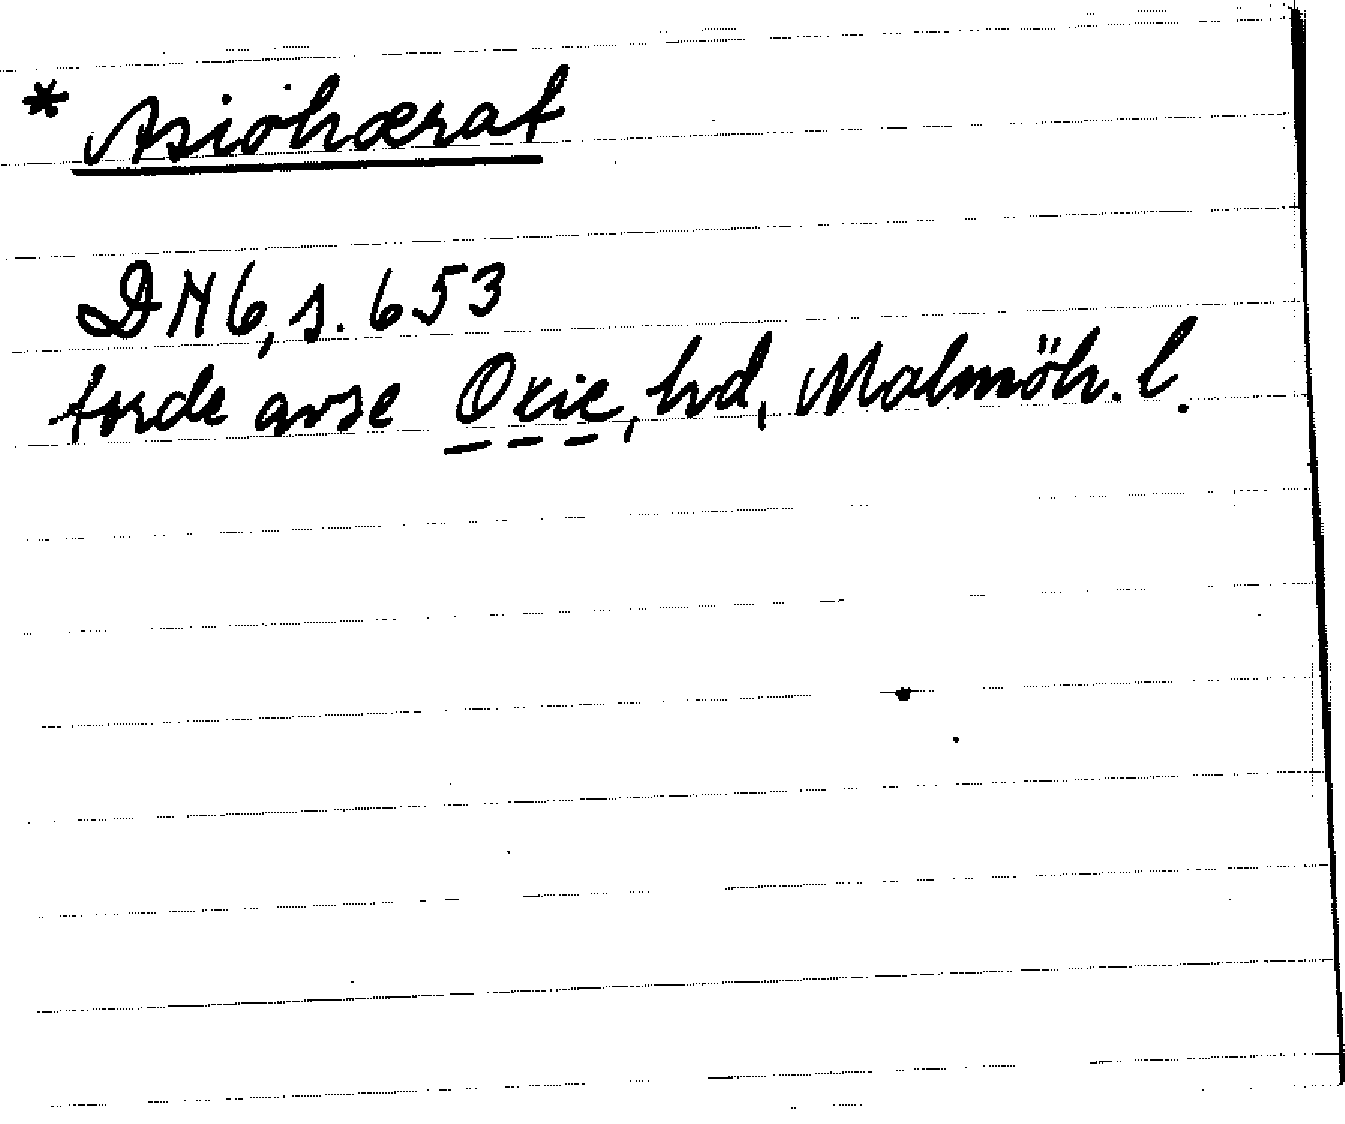 * Asiøhærat
DN6, s. 653
torde avse Oxie, hd, Malmöh. l.